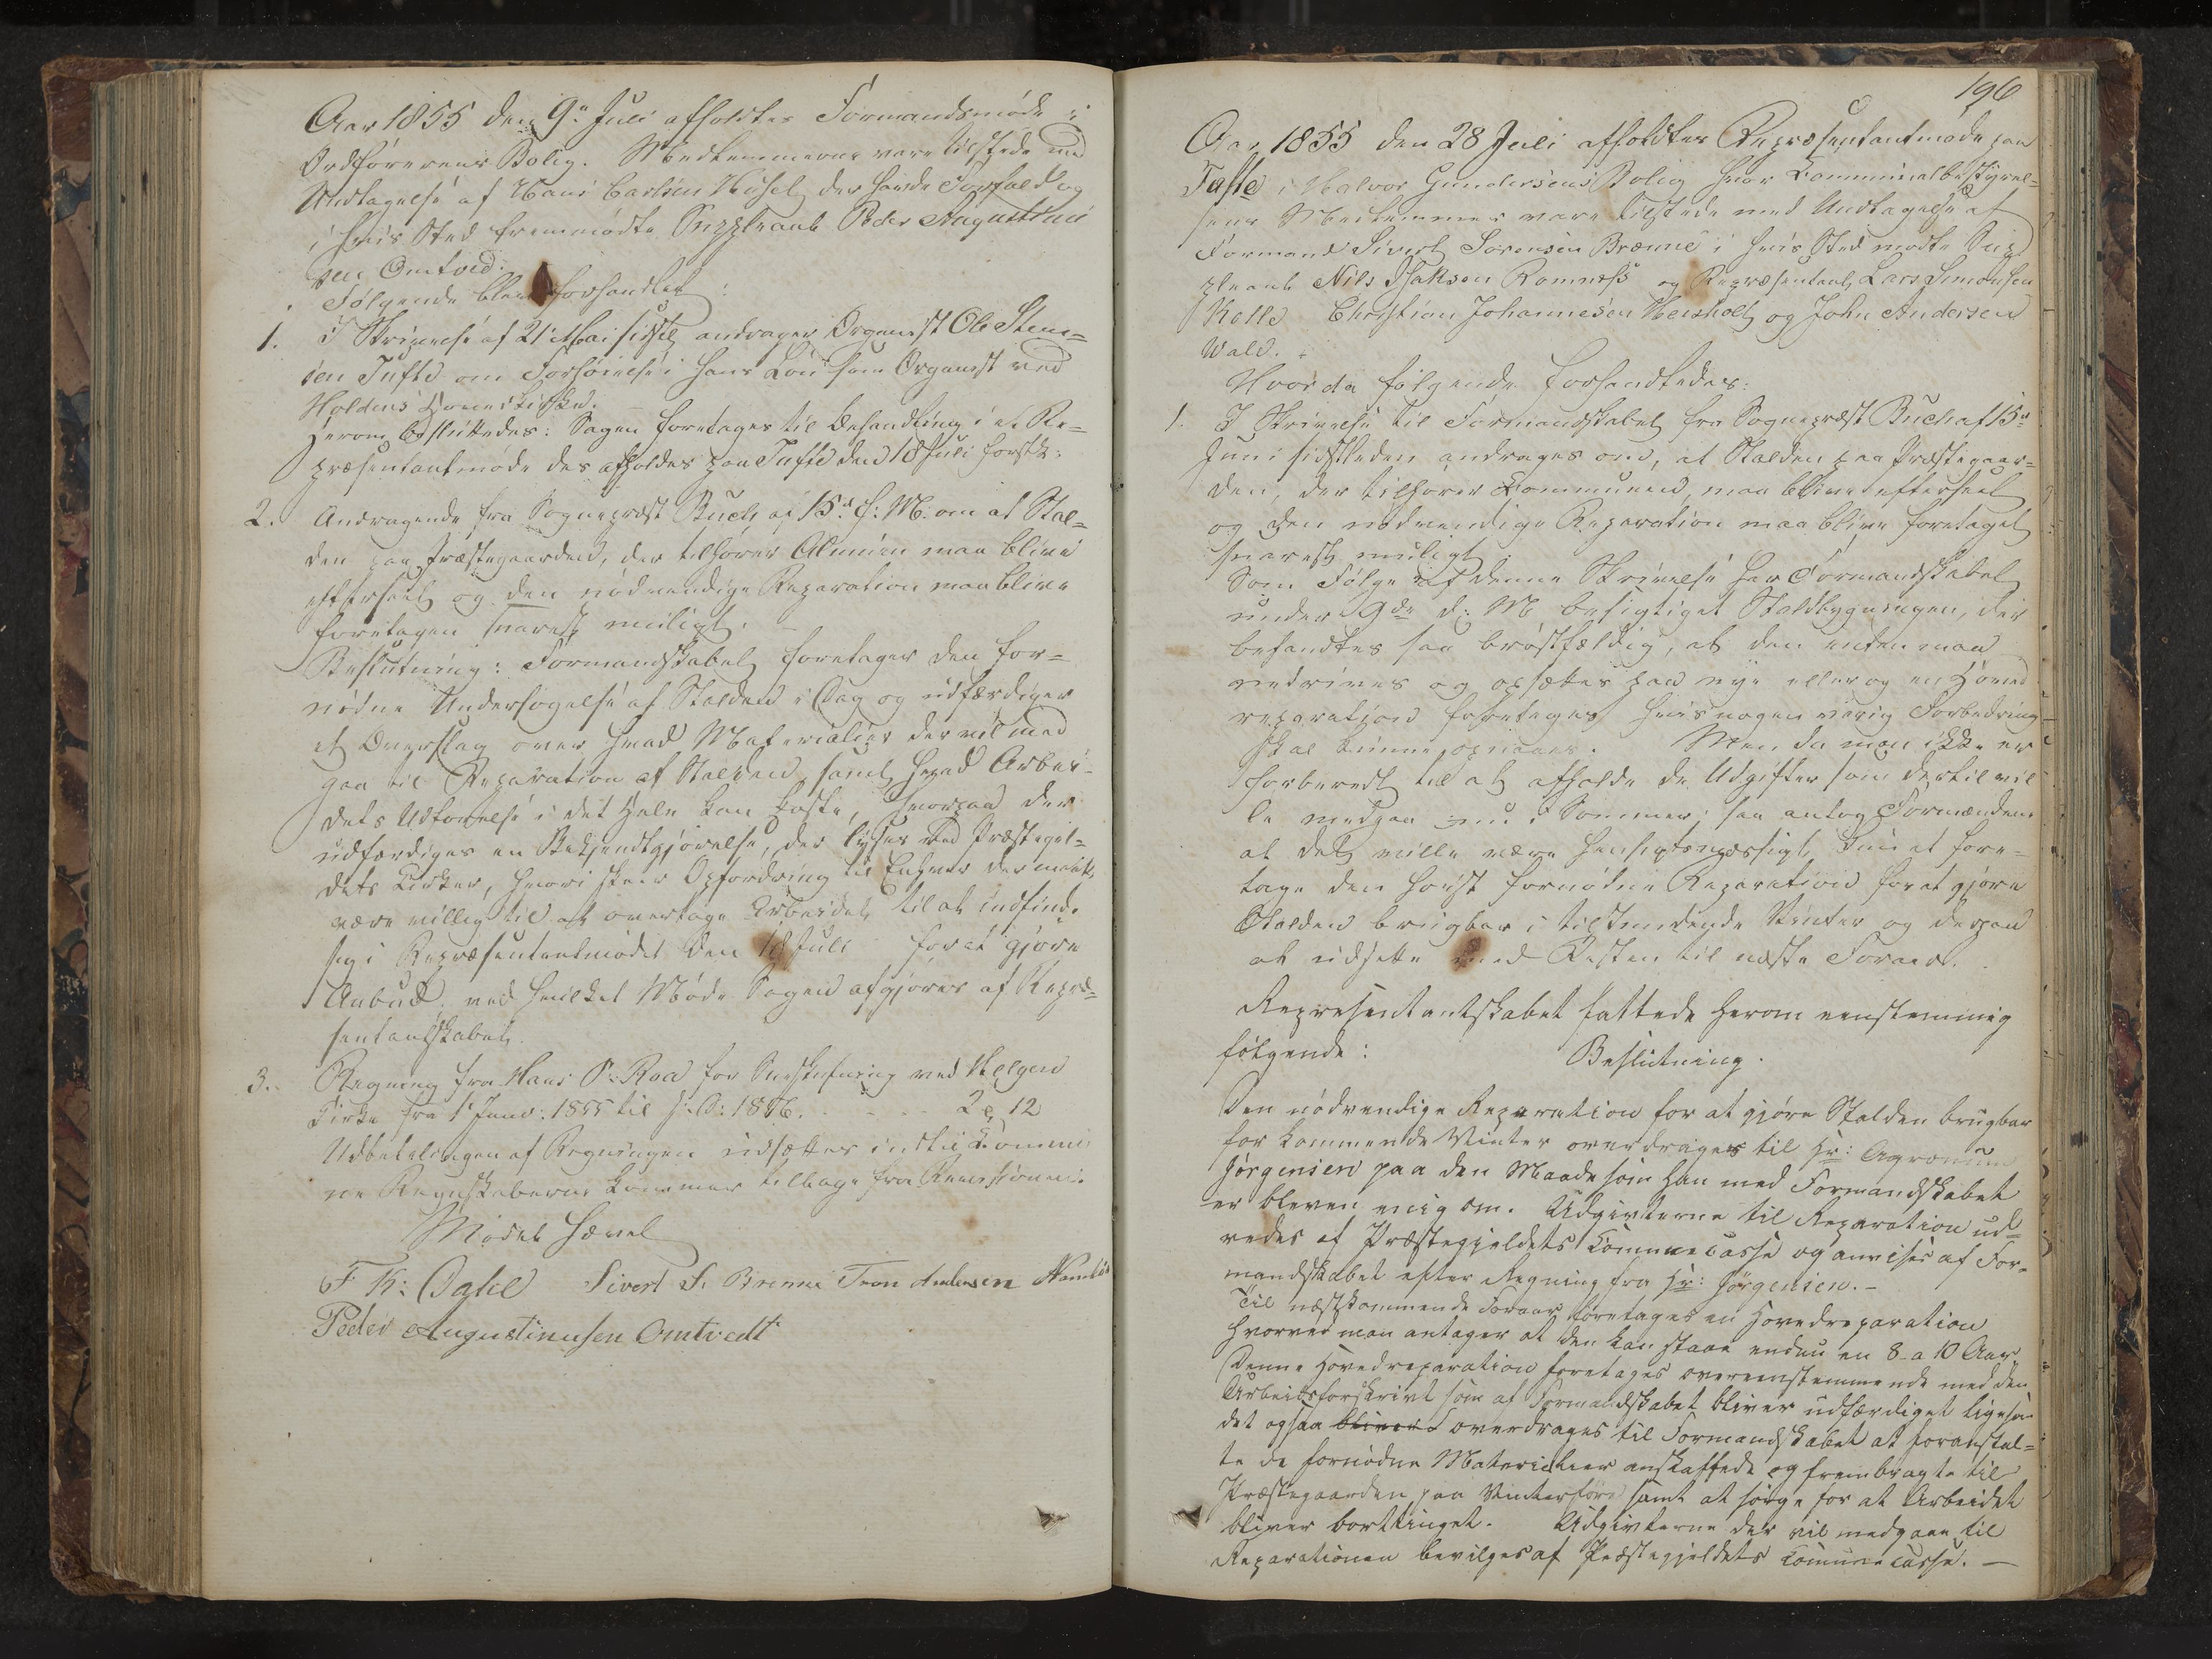 Aar 1855 den 9de Juli afholdtes Formandsmöde i
Ordförerens Bolig. Medlemmerne vare tilstede med
Undtagelse af Hans Carlsen Häsel der havde Forfald og
i hvis Sted fremmödte Suppleant Peder Augustinu
sen Omtved.
Fölgende blev forhandlet:
1. I Skrivelse af 21 Mai sidstl andrager Organist Ole Stens=
sen Tufte om Forhöielse i Hans Lön som Organist ved
Holdens Hovedkirke.
Herom besluttedes: Sagen foretages til Behandling i et Re=
præsentantmöde der afholdes paa Tufte den 18 Juli förstk:
2. Andragende fra Sognepræst Buch af 15d f: M: om at Stal=
den paa Præstegaarden, der tilhörer Almuen maa blive
efterseet og den nödvendige Reparation maa blive
foretagen snarest muligt.
Beslutning: Formandskabet foretager den for=
nödne Undersögelse af Stalden i Dag og udfærdiger
et Overslag over hvad Materialier der vil med
gaa til Reparation af Stalden, samt hvad Arbei=
dets Udförelse i det Hele kan koste, hvorpaa der
udfærdiges en Bekjendtgjörelse, der lyses ved Præstegjel=
dets Kirker, hvori skeer Opfordring til Enhver der maatte
være villig til at overtage Arbeidet til at indfinde
sig i Repræsentantmödet den 18 Juli for at gjöre
Anbud ved hvilket Möde Sagen afgjöres af Repræ=
sentantskabet.
3. Regning fra Hans P. Roa for Sneskufning ved Helgen
Kirke fra 1 Janv: 1855 til s: D: 1856. . . . . 2 12
Udbetalingen af Regningen udsættes indtil Kommu
ne Regnskaberne kommer tilbage fra Revisionen.
Mödet hævet
F Th: Dahl Sivert S. Brenne Tron Andersen
Peder Augustinusen Omtvedt
196
Aar 1855 den 28 Juli afholdtes Repræsentantmöde paa
Tufte i Halvor Gundersens Bolig hvor Kommunalbestyrel=
sens Medlemmer vare tilstede med Undtagelse af
Formand Sivert Sörensen Brenne i hvis Sted mödte Sup
pleant Nils Isaksen Romnes og Repræsentant Lars Simonsen
Kolle Christian Johannesen Hersholt og John Andersen
Wald.
Hvor da fölgende forhandledes:
1. I Skrivelse til Formandskabet fra Sognepræst Buch af 15d
Juni sidstleden andrages om, at Stalden paa Præstegaar=
den, der tilhörer Kommunen, maa blive efterseet
og den nödvendige Reparation maa blive foretaget
snarest muligt.
Som Fölge af denne Skrivelse har Formandskabet
under 9de d: M: besigtiget Staldbygningen, der
befandtes saa bröstfældig, at den enten maa
nedrives og opsættes paa nye eller og en Hoved
reparation foretages hvis nogen varig Forbedring
skal kunne opnaaes. Men da man ikke er
forberedt til at afholde de Udgifter som dertil vil
le medgaa nu i Sommer; saa antog Formændene
at det ville være hensigtsmæssigt kun at fore=
tage den höist fornödne Reparation for at gjöre
Stalden brugbar i tilstundende Vinter og derpaa
at udsette med Resten til næste Foraar.
Repræsentantskabet fattede herom eenstemmig
fölgende: Beslutning.
Den nödvendige Reparation for at gjöre Stalden brugbar
for kommende Vinter overdrages til Hr: Agronom
Jörgensen paa den Maade som han med Formandskabet
er bleven enig om. Udgivterne til Reparation ud=
redes af Præstegjeldets Kommunecasse og anvises af For=
mandskabet efter Regning fra Hr: Jörgensen.-
Til næstkommende Foraar foretages en Hovedreparation
hvorved man antager at den kan staae endnu en 8 a 10 Aar.
Denne Hovedreparation foretages overeenstemmende med den
Arbeidsforskrivt som af Formandskabet bliver udfærdiget ligesom
det ogsaa bliver overdrages til Formandskabet at foranstal=
te de fornödne Materialier anskaffede og frembragte til
Præstegaarden paa Vinterföre samt at sörge for at Arbeidet
bliver borttinget. Udgivterne der vil medgaae til
Reparationen bevilges af Præstegjeldets Kommunecasse.-